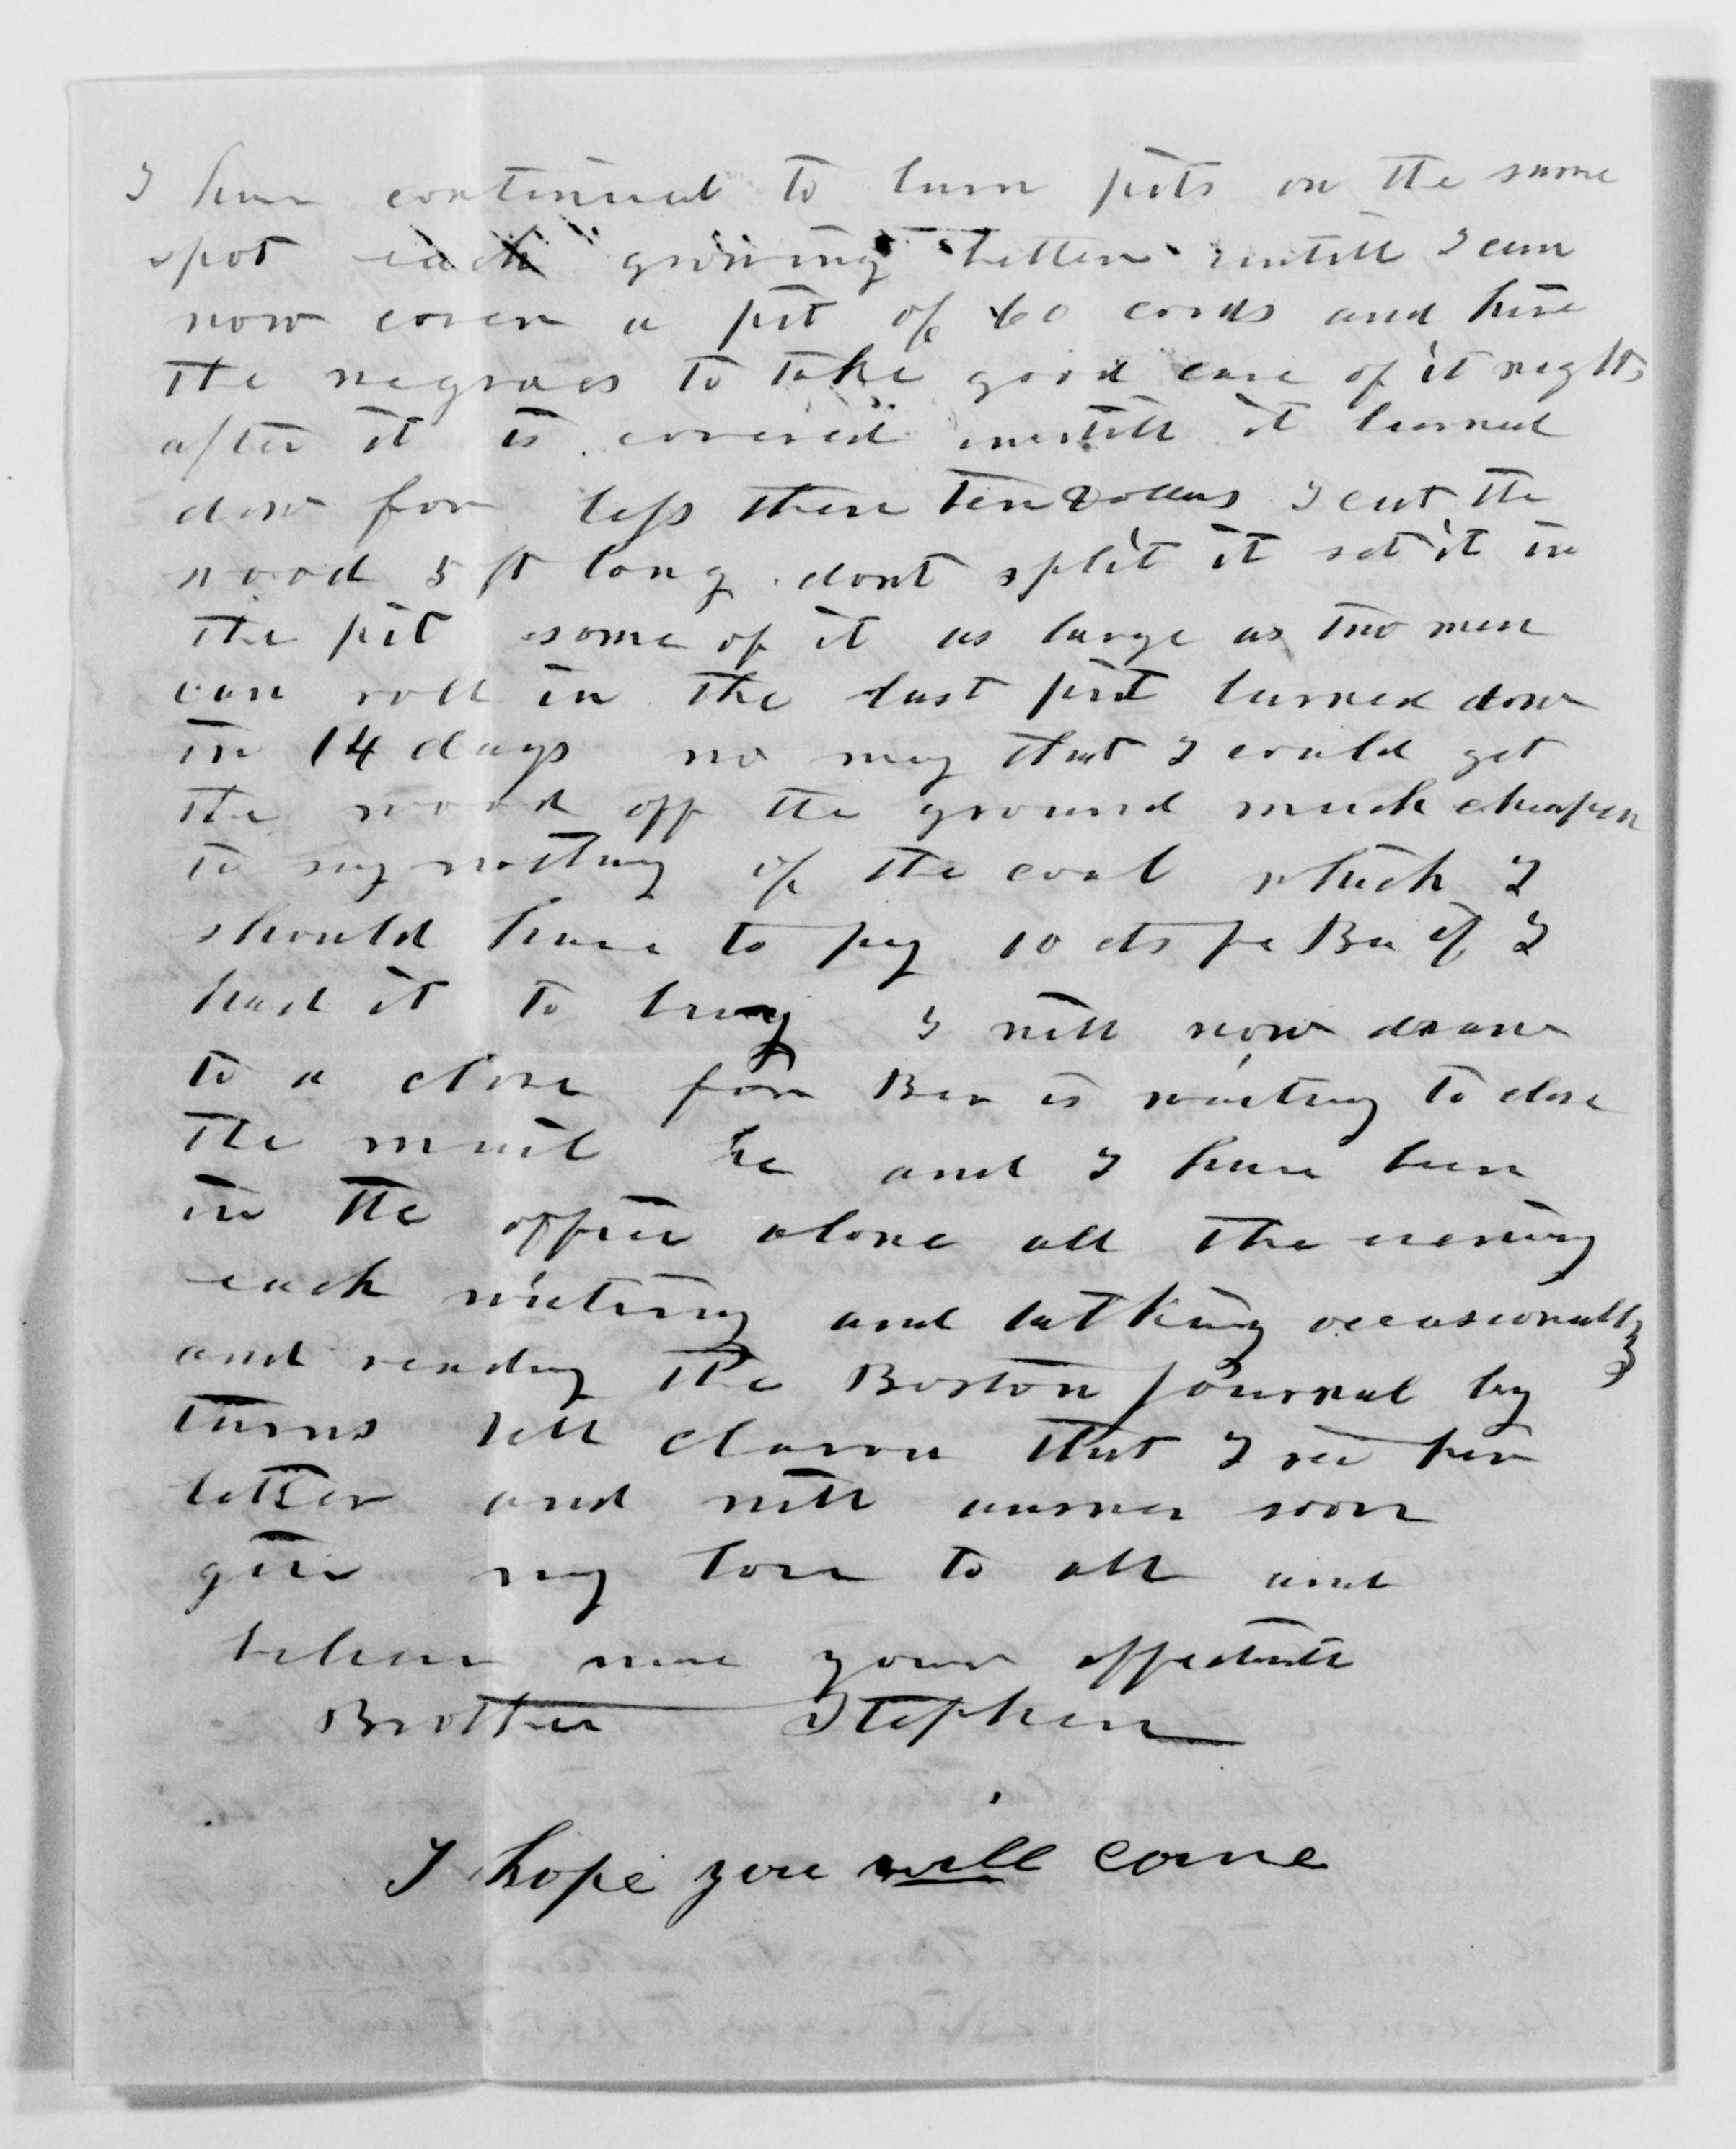 I have continued to burn pits on the same
spot each growing better untill I can
now cover a pit of 60 cords and hire
the negroes to take good care of it nights
after it is covered untill it burned
down for less then ten Dollars I cut the
wood 5 ft long dont split it set it in
the pit some of it as large as two men
can roll in the last pit burned down
in 14 days no way that I could get
the wood off the ground much cheaper
to say nothing of the coal which I
should have to pay 10 cts pr Bu if I
had it to buy I will now draw
to a close for Ben is waiting to close
the mail he and I have been
in the office alone all the evening
each writing and talking occasionally
and reading the Boston Journal by
turns tell Clara that I rec her
letter and will answer soon
give my love to all and
believe me your affectnate
Brother Stephen
I hope you will come